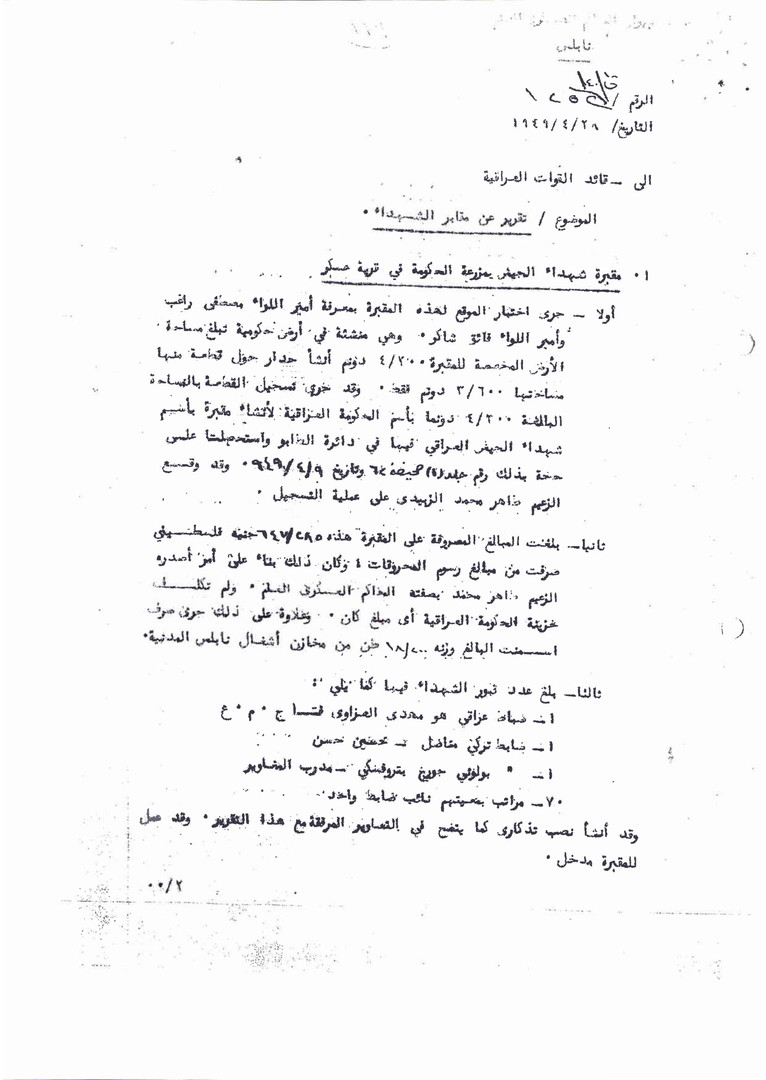 نابلس
الرقم /
التاريخ/ ٢٨/٤/١٩٤٩
الى – قائد القوات العراقية
الموضوع / تقرير عن مقابر الشهداء ٠
١٠ مقبرة شهداء الجيش بمزرعة الحكومة في قرية عسكر
أولا – جرى اختيار الموقع لهذه المقبرة بمعرفة أمير اللواء مصطفى راغب
وأمير اللواء فائق شاكر ٠ وهي منشئة في أرض حكومية تبلغ مساحة
الأرض المخصصة للمقبرة ٤/٢٠٠ دونم أنشأ جدار حول قطعة منها
مساحتها ٣/٦٠٠ دونم فقط ٠ وقد جرى تسجيل القطعة بالمساحة
البالغة ٤/٢٠٠ دونما بأسم الحكومة العراقية لأنشاء مقبرة بأسم
شهداء الجيش العراقي فيها في دائرة الطابو واستحصلت على
حجة بذلك رقم جلد صحيفة وتاريخ ٩/٤/٩٤٩ ٠ وقد وقع
الزعيم طاهر محمد الزبيدى على عملية التسجيل ٠
ثانيا – بلغت المبالغ المصروفة على المقبرة هذه ٦٤٧/٢٨٥ جنيه فلسطيني
صرفت من مبالغ رسوم المحروقات ؛ وكان ذلك بناء على أمر أصدره
الزعيم طاهر محمد بصفته الحاكم العسكرى العام ٠ ولم تكلف
خزينة الحكومة العراقية أى مبلغ كان ٠ وعلاوة على ذلك جرى صرف
اسمنت البالغ وزنه ١٨/٢٠٠ طن من مخازن أشغال نابلس المدنية ٠
ثالثا – بلغ عدد قبور الشهداء فيها كما يلي :
١ – ضابط عراقي هو مهدى العزاوى ج ٠ م ٠ ع
١ – ضابط تركي مناضل – تحسين حسن
١ – " بولوني جورج بتروفسكي – مدرب المغاوير
٧٠ – مراتب بمعيتهم نائب ضابط واحد ٠
وقد أنشأ نصب تذكارى كما يتضح في التصاوير المرفقة مع هذا التقرير ٠ وقد عمل
للمقبرة مدخل ٠
٠٠/٢